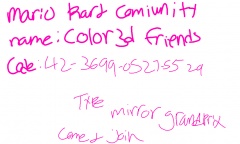 Mario Kart Comiunity
name: Color3d friends
Code: 42-3699-0527-5529
Type mirror grandprix
Come & join